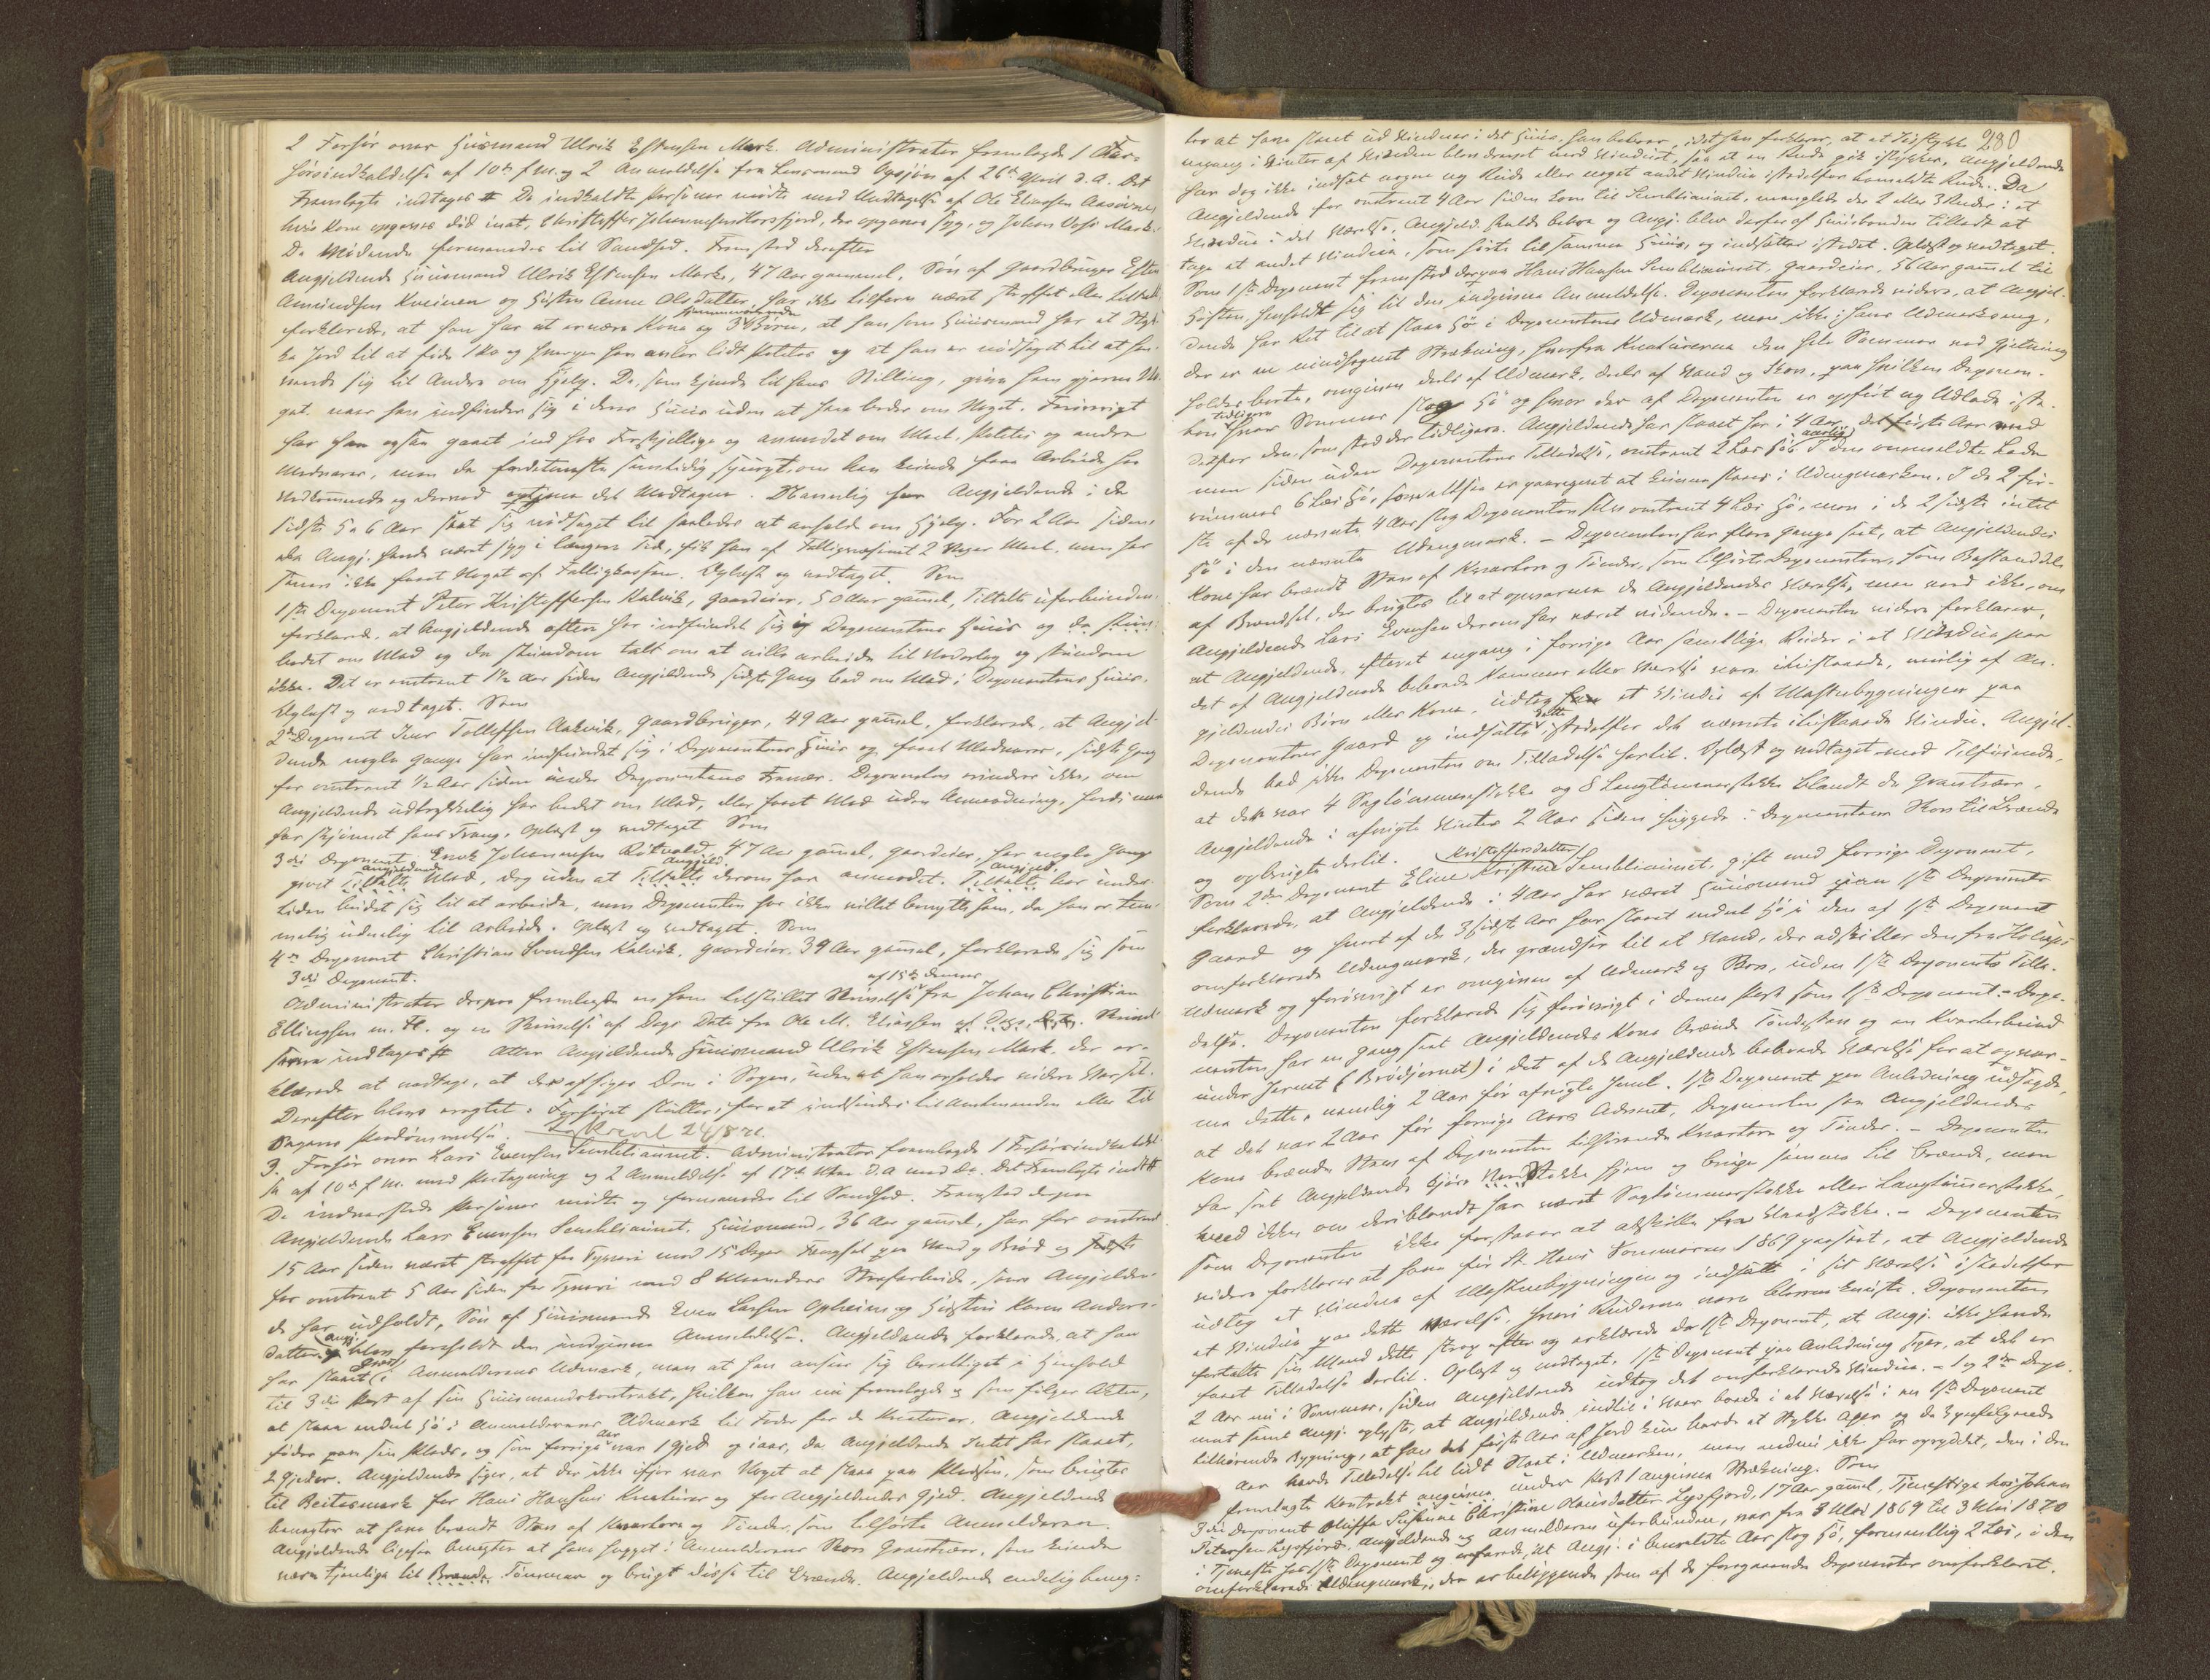 2 Forhør over Huusmand Ulrik Estensen Mark. Administrator fremlagde 1 For-
hørsindkaldelse af 10de f M. og 2 Anmeldelse fra Lensmand Opsjøn af 26de April d. A. Det
Fremlagte indtages # De indkaldte Personer mødte med Undtagelse af Ole Eliassen Aasovnes
hvis Kone opgaves død inat, Christopher Johannessen Korsfjord, der opgaves syg, og Johan Mark.
De Mødende formanedes til Sandhed. Fremstod derefter
Angjeldende Huusmand Ulrik Estensen Mark, 47 Aar gammel, Søn af Gaardbruger Esten
Amundsen Kvienen og Hustru Anne Olsdatter, har ikke tilforn været straffet eller tiltalt,
forklarede, at han har at ernære Kone og 3 hjemmeværende Børn, at han som Huusmand har et Styk-
ke Jord til at føde 1 Ko og hvorpaa han avler lidt Poteter og at han er nødsaget til at hen-
vende sig til Andre om Hjelp. De, som kjende til hans Stilling, give ham gjerne No-
get, naar han indfinder sig i deres Huus uden at han beder om Noget. Forøvrigt
har han ogsaa gaaet ind hos Forskjellige og anmodet om Meel, Poteter og andre
Madvarer, men da fordetmeste samtidig spurgt, om han kunde faae Arbeide hos
Vedkommende og derved optjene det Modtagne. Navnlig har Angjeldende i de
sidste 5 a 6 Aar seet sig nødsaget til saaledes at anholde om Hjelp. For 2 Aar siden
da Angj. havde været syg i længere Tid, fik han af Fattigvæsenet 2 Voger Meel, men har
senere ikke faaet Noget af Fattigkassen. Oplæst og vedtaget. Som
1ste Deponent Peter Kristoffersen Kalvik, Gaardeier, 50 Aar gammel, Tiltalte uforbunden,
forklarede, at Angjeldende oftere har indfundet sig i Deponentens Huus og da stundom
bedet om Mad og da stundom talt om at ville arbeide til Vederlag og stundom
ikke. Det er omtrent 1½ Aar siden Angjeldende sidste Gang bad om Mad i Deponentens Huus.
Oplæst og vedtaget. Som
2den Deponent Iver Tollefsen Aakvik, Gaardbruger, 49 Aar gammel, forklarede, at Angjel-
dende nogle Gange har indfundet sig i Deponentens Huus og faaet Madvarer, sidste Gang
for omtrent ½ Aar siden under Deponentens Fravær. Deponenten erindrer ikke, om
Angjeldende udtrykkelig har bedet om Mad, eller faaet Mad uden Anmodning, fordi man
har skjønnet hans Trang. Oplæst og vedtaget. Som
3die Deponent Enok Johannesen Røtvold, 47 Aar gammel, Gaardeier, har nogle Gange
givet Tiltalte Angjeldende Mad, dog uden at Tiltalte Angjeld. derom har anmodet. Tiltalte Angjeld. har under-
tiden budet sig til at arbeide, men Deponenten har ikke villet benytte ham, da han er tem-
melig uduelig til Arbeide. Oplæst og vedtaget. Som
4de Deponent Christian Svendsen Kalvik, Gaardeier, 39 Aar gammel, forklarede sig som
3die Deponent.
Administrator derpaa fremlagde en ham tilstillet Skrivelse af 15de dennes fra Johan Christian
Ellingsen m. Fl. og en Skrivelse af Dags Dato fra Ole M. Eliassen. Skrivel-
serne indtages # Atter Angjeldende Huusmand Ulrik Estensen Mark, der er-
klærede at vedtage, at der afsiges Dom i Sagen, uden at han erholder videre Varsel.
Derefter blev eragtet: Forhøret sluttes, for at indsendes til Amtmanden eller til
Sagens Paadømmelse.
3. Forhør over Lars Evensen Semklianivet. Administrator fremlagde 1 Forhørsindkaldel-
se af 10de f M. med Paategning og 2 Anmeldelse af 17de Mai d. A med Do. Det Fremlagte indt #
De indvarslede Personer mødte og formanedes til Sandhed. Fremstod derpaa
Angjeldende Lars Evensen Semklianivet, Huusmand, 36 Aar gammel, har for omtrent
15 Aar siden været straffet for Tyveri med 15 Dages Fængsel paa Vand og Brød og
for omtrent 5 Aar siden for Tyveri med 8 Maaneders Strafarbeide, som Angjelden-
de har udholdt, Søn af Huusmand Even Larsen Opheim og Hustru Karen Anders-
datter. Angj. blev foreholdt den indgivne Anmeldelse. Angjeldende forklarede, at han
har slaaet i Anmelderens Udmark, men at han anser sig berettiget i Henhold
til 3die Post af sin Huusmandskontrakt, hvilken han nu fremlagde og som følger Akten,
at slaae endeel Hø i Anmelderens Udmark til Foder for de Kreaturer, Angjeldende
føder paa sin Plads, og som forrige Aar var 1 Gjed og iaar, da Angjeldende Intet har slaaet,
2 Gjeder. Angjeldende siger, at der ikke ifjor var Noget at slaae paa Pladsen, som brugtes
til Beitesmark for Hans Hansens Kreaturer og for Angjeldendes Gjed. Angjeldende
benægter at have brændt Staver af Kvartere og Tønder, som tilhørte Anmelderen.
Angjeldende ligesaa benægter at have hugget i Anmelderens Skov Grantræer, som kunde
være tjenlige til Brænde Tømmer og brugt disse til Brænde. Angjeldende endelig beneg-
280
ter at have slaaet ud Vinduer i det Huus, han beboer, idet han forklarer, at et Træstykke
engang i Vinter af Vinden blev drevet mod Vinduet, saa at en Rude gik istykker, Angjeldende
har dog ikke indsat nogen ny Rude eller noget andet Vindue istedetfor bemeldte Rude. Da
Angjeldende for omtrent 4 Aar siden kom til Semklianivet, manglede der 2 eller 3 Ruder i et
Vindue i det Værelse, Angjeld. skulde beboe og Angj. blev derfor af Huusbonden tilladt at
tage et andet Vindue, som hørte til samme Huus, og indsætte istedet. Oplæst og vedtaget.
Som 1ste Deponent fremstod derpaa Hans Hansen Semklianivet, Gaardeier, 56 Aar gammel til
Høsten, henholdt sig til den indgivne Anmeldelse. Deponenten forklarede videre, at Angjel-
dende har Ret til at slaae Hø i Deponentens Udmark, men ikke i hans Udmarkseng,
der er en indhegnet Strækning, hvorfra Kreaturerne den hele Sommer ved Gjetning
holdes borte, omgiven deels af Udmark, deels af Vand og Skov, paa hvilken Deponen-
ten tidligere hver Sommer slog Hø og hvor der af Deponenten er opført ny Udlade iste-
detfor den, som stod der tidligere. Angjeldende har slaaet her i 4 Aar, det første Aar med
men siden uden Deponentens Tilladelse, omtrent 2 Læs Hø aarlig. I den ommeldte Lade
rummes 6 Læs Hø, som altsaa er paaregnet at kunne slaaes i Udengmarken. I de 2 før-
ste af de nævnte 4 Aar slog Deponenten selv omtrent 4 Læs Hø, men i de 2 sidste intet
Hø i den nævnte Udengmark. – Deponenten har flere Gange seet, at Angjeldendes
Kone har brændt Staver af Kvartere og Tønder, som tilhørte Deponenten, som Bestanddele
af Brændsel, der brugtes til at opvarme de Angjeldendes Værelse, men veed ikke, om
Angjeldende Lars Evensen derom har været vidende. – Deponenten videre forklarer,
at Angjeldende, efterat engang i forrige Aar samtlige Ruder i et Vindue paa
det af Angjeldende beboede Kammer eller Værelse vare itustaaede, nemlig af An-
gjeldendes Børn eller Kone, udtog et Vindue af Masstubygningen paa
Deponentens Gaard og indsatte dette istedetfor det nævnte ituslaaede Vindue. Angjel-
dende bad ikke Deponenten om Tilladelse hertil. Oplæst og vedtaget med Tilføiende,
at det var 4 Sagtømmerstokke og 8 Langtømmerstokke blandt de Grantræer,
Angjeldende i afvigte Vinter 2 Aar siden huggede i Deponentens Skov til Brænde
og opbrugte dertil.
Som 2den Deponent Eline Kristoffersdatter Semklianivet, gift med forrige Deponent,
forklarede, at Angjeldende i 4 Aar har været Huusmand paa 1ste Deponents
Gaard og hvert af de 3 sidste Aar har slaaet endeel Hø i den af 1ste Deponent
omforklarede Udengmark, der grændser til et Vand, der adskiller den fra
Udmark og forøvrigt er omgiven af Udmark og Skov, uden 1ste Deponents Tilla-
delse. Deponenten forklarede sig forøvrigt i denne Post som 1ste Deponent. – Depo-
nenten har en Gang seet Angjeldendes Kone brænde Tøndestaver og en Kvarterbund
under Jernet (Brødjernet) i det af de Angjeldende beboede Værelse for at opvar-
me dette, nemlig 2 Aar før afvigte Juul. 1ste Deponent paa Anledning udsagde,
at det var 2 Aar før forrige Aars Advent, Deponenten saa Angjeldendes
Kone brænde Staver af Deponenten tilhørende Kvartere og Tønder. – Deponenten
har seet Angjeldende kjøre Stokke hjem og bruge samme til Brænde, men
veed ikke, om deriblandt har været Sagtømmerstokke eller Langtømmerstokke,
som Deponenten ikke forstaaer at adskille fra Vraagstokke. – Deponenten
videre forklarer at have før St. Hans Sommeren 1869 paaseet, at Angjeldende
udtog et Vindue af Masstubygningen og indsatte i sit Værelse istedetfor
et Vindue paa dette Værelse, hvori Ruderne vare blevne knuste. Deponenten
fortalte sin Mand dette strax efter og erklærede da 1ste Deponent, at Angj. ikke havde
faaet Tilladelse dertil. Oplæst og vedtaget. 1ste Deponent paa Anledning siger, at det er
2 Aar nu i Sommer, siden Angjeldende udtog det omforklarede Vindue. – 1 og 2den Depo-
nent samt Angj. oplyste, at Angjeldende indtil i Vaar boede i et Værelse i en 1ste Deponent
tilhørende Bygning, at han det første Aar af Jord kun havde et Stykke Ager og de 3 paafølgende
Aar havde Tilladelse til lidt Slaat i Udmarken, men endnu ikke har opryddet, den i den
fremlagte Kontrakt under Post 1 angivne Strækning. Som
3die Deponent Oleffa Susanne Christine Hansdatter Lysfjord, 17 Aar gammel, Tjenestpige hos Johan
Petersen Lysfjord, Angjeldende og Anmelderen uforbunden, var fra 3 Mai 1869 til 3 Mai 1870
i Tjeneste hos 1ste Deponent og erfarede, at Angj. i bemeldte Aar slog Hø, formentlig 2 Læs, i den
omforklarede Udengmark, der er beliggende som af de foregaaende Deponenter omforklaret.